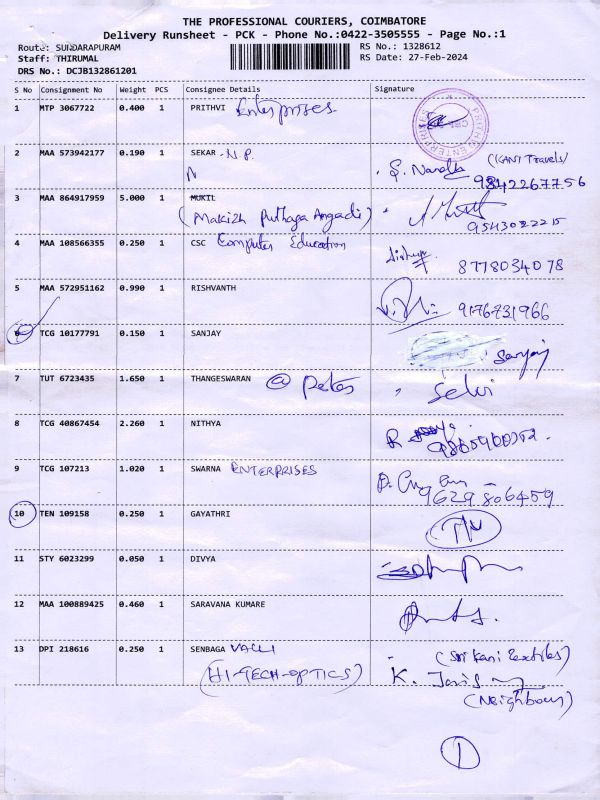 THE PROFESSIONAL COURIERS, COIMBATORE
Delivery Runsheet - PCK - Phone No.:0422-3505555 - Page No.:1
Route: SUNDARAPURAM RS No.: 1328612
Staff: THIRUMAL RS Date: 27-Feb-2024
DRS No.: DCJB132861201
S No Consignment No Weight PCS Consignee Details Signature
1 MTP 3067722 0.400 1 PRITHVI Enterprises
2 MAA 573942177 0.190 1 SEKAR N.P.
(KANI Travels)
9842267756
3 MAA 864917959 5.000 1 MUKIL
(Makizh Puthaga Angadi)
9543022215
4 MAA 108566355 0.250 1 CSC Computer Education
8778034078
5 MAA 572951162 0.990 1 RISHVANTH
9176731966
6 TCG 10177791 0.150 1 SANJAY
Sanjay
7 TUT 6723435 1.650 1 THANGESWARAN @ Selvi
8 TCG 40867454 2.260 1 NITHYA
9 TCG 107213 1.020 1 SWARNA ENTERPRISES
9629806459
10 TEN 109158 0.250 1 GAYATHRI
11 STY 6023299 0.050 1 DIVYA
12 MAA 100889425 0.460 1 SARAVANA KUMARE
13 DPI 218616 0.250 1 SENBAGA VALLI (Sri Kani Textiles)
(HI-TECH-OPTICS) K.
(Neighbour)
1